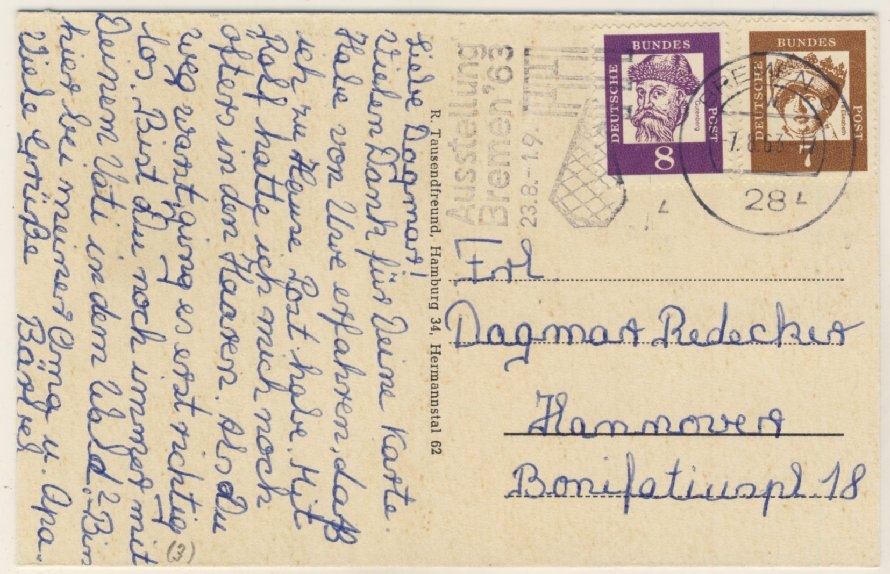 Liebe Dagmar!
Vielen Dank für Deine Karte.
Habe von Uwe erfahren, daß
ich zu Hause Post habe. Mit
Rolf hatte ich mich noch
öfters in den Haaren. Als Du
weg warst, ging es erst richtig
los. Bist Du noch immer mit
Deinem Vati in dem Wald? Bin
hier bei meiner Oma u. Opa.
Viele Grüße Bärbel
(3)
R. Tausendfreund, Hamburg 34, Hermannstal 62
Ausstellung
Bremen '63
23.8.–1.9.
DEUTSCHE BUNDES POST
Gutenberg
8
DEUTSCHE BUNDES POST
7
BREMEN
7.8.63
28 L
Frl.
Dagmar Redecker
Hannover
Bonifatiuspl 18